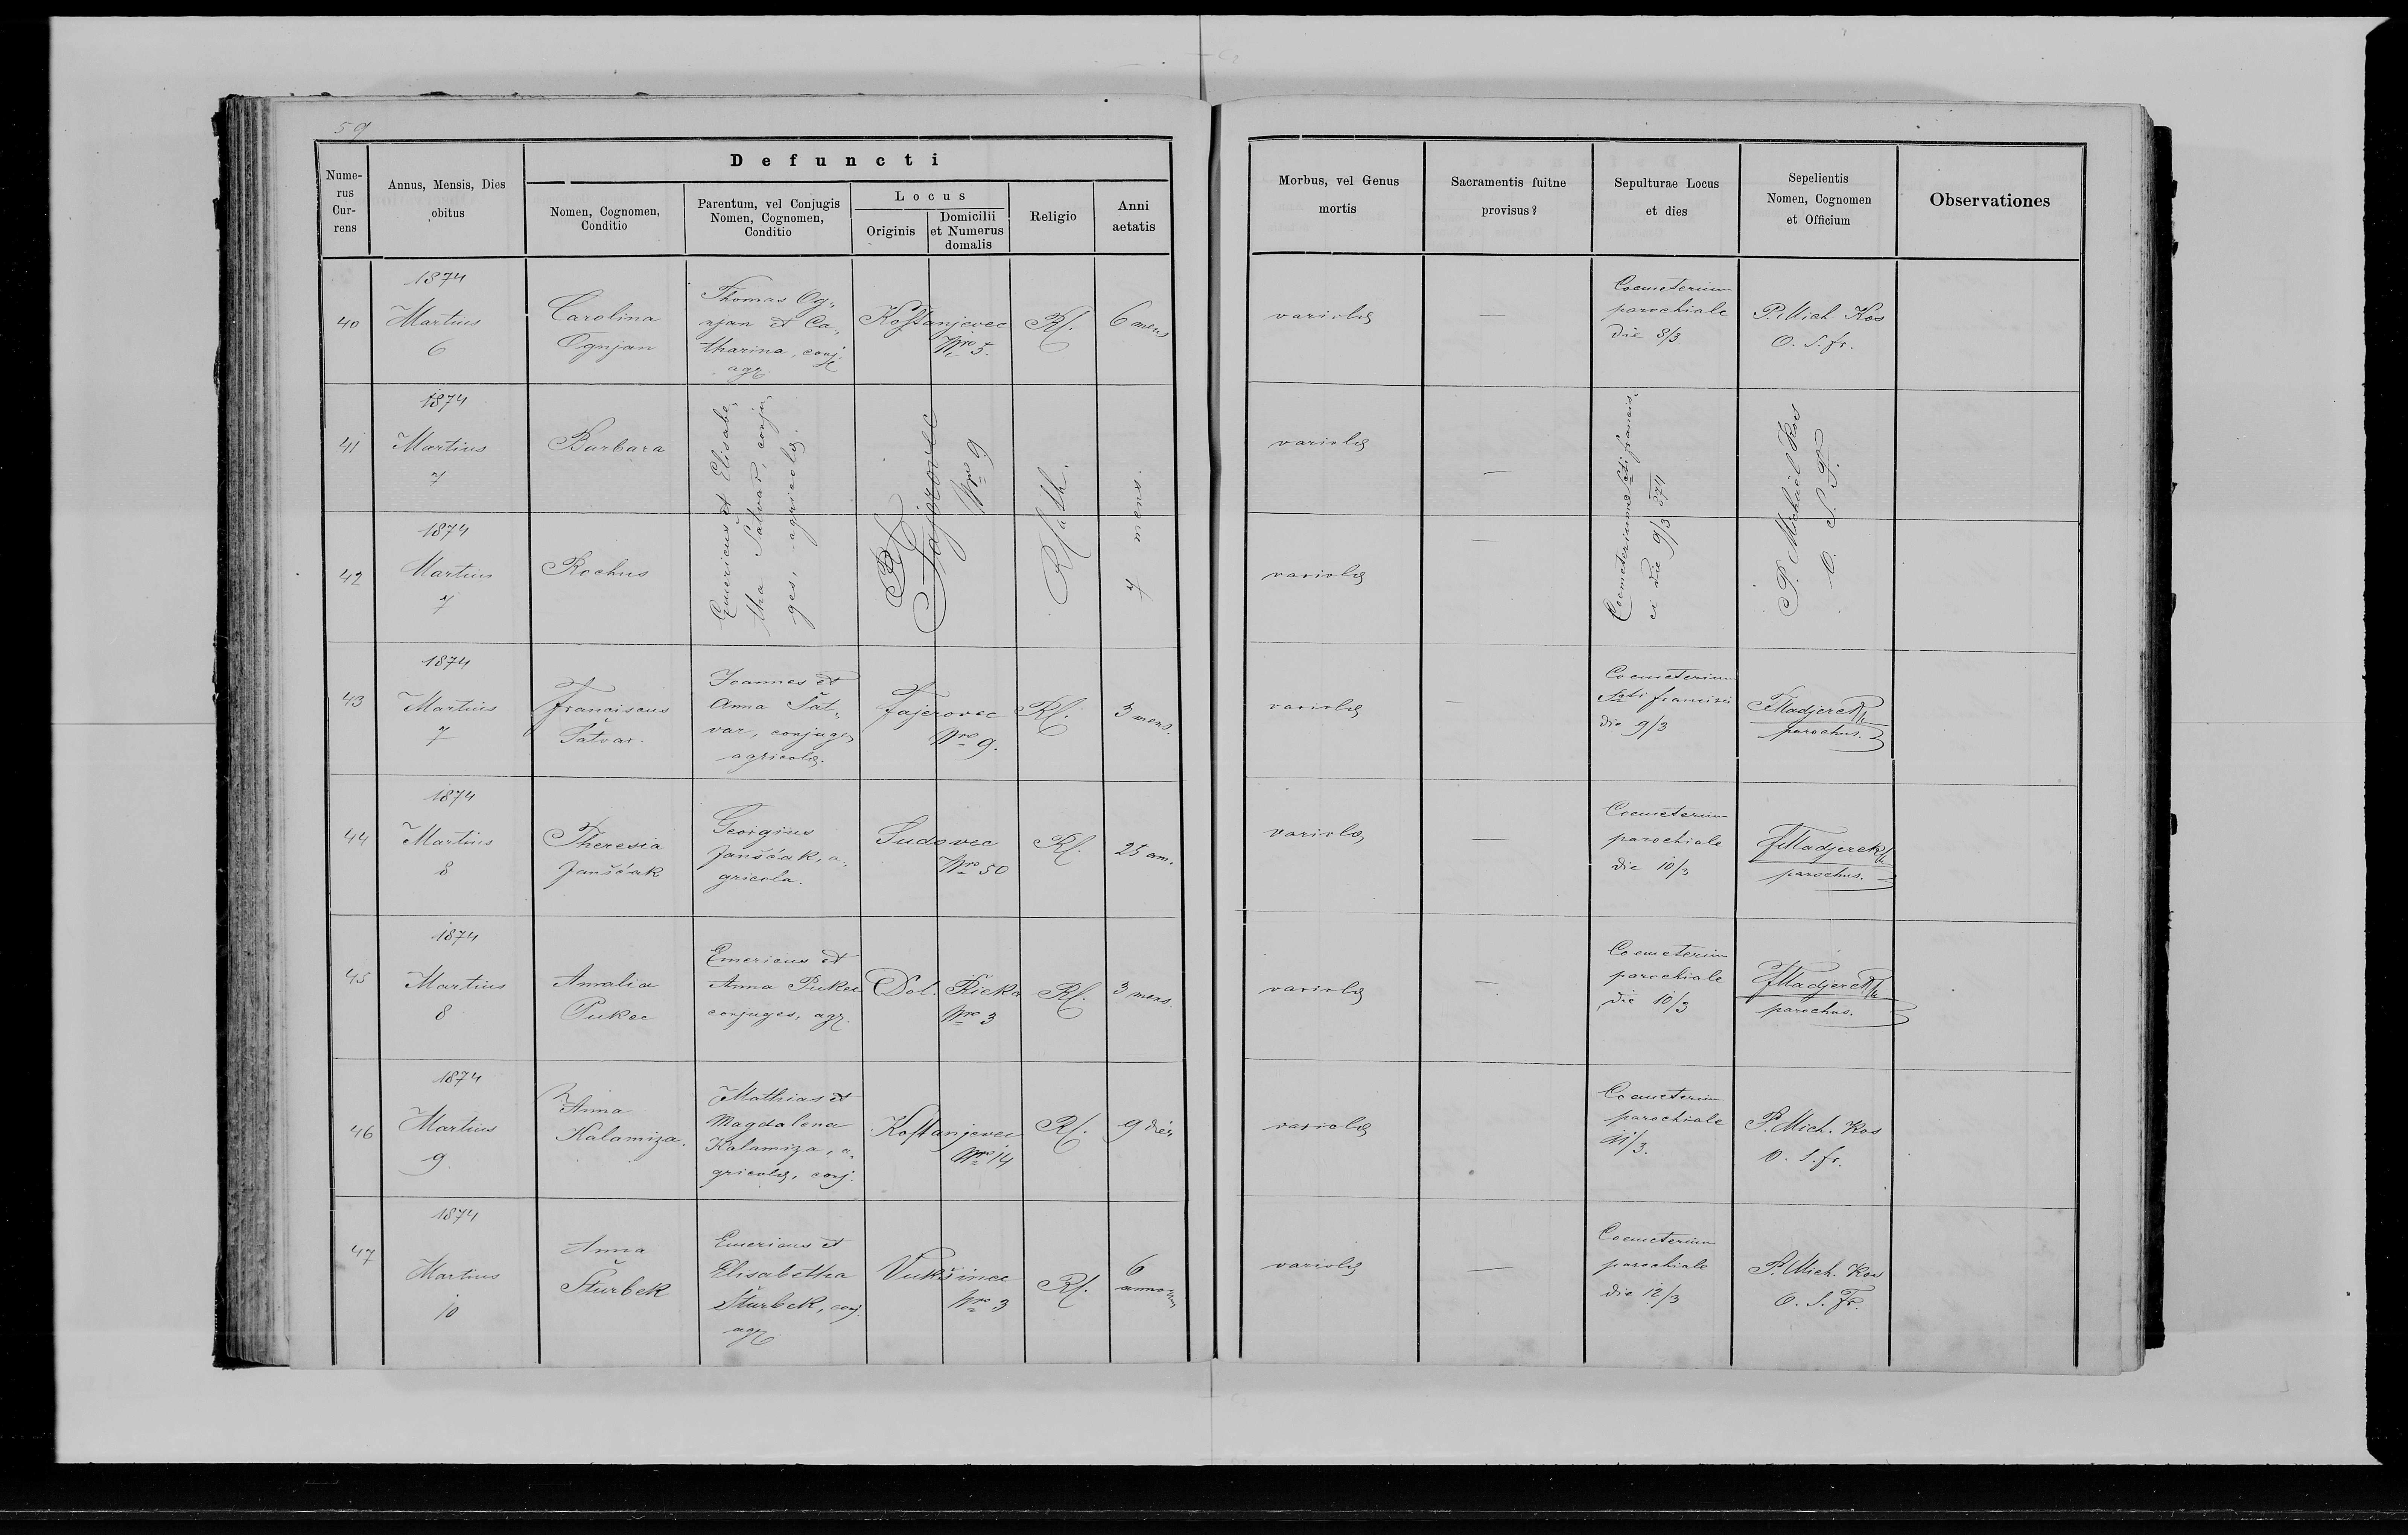 59
Defuncti
Nume-
rus
Cur-
rens
Annus, Mensis, Dies
obitus
Nomen, Cognomen,
Conditio
Parentum, vel Conjugis
Nomen, Cognomen,
Conditio
Locus
Originis
Domicilii
et Numerus
domalis
Religio
Anni
aetatis
Morbus, vel Genus
mortis
Sacramentis fuitne
provisus?
Sepulturae Locus
et dies
Sepelientis
Nomen, Cognomen
et Officium
Observationes
40
1874
Martius
6
Carolina
Ognjan
Thomas Og„
njan et Ca„
tharina, conj.
agr.
Kostanjevec
Nro 5.
RC.
6 mens
variolæ
—
Coemeterium
parochiale
die 8/3
P. Mich. Kos
O. S. fr.
41
1874
Martius
7
Barbara
Emericus et Elisabe„
tha Šatvar, conju„
ges, agricolæ.
Fajerovec
Nro 9
RCath.
7 mens.
variolæ
—
Coemeterium Scti francis„
ci die 9/3 874
P. Michael Kos
O. S. F.
42
1874
Martius
7
Rochus
variolæ
—
43
1874
Martius
7
Franciscus
Šatvar.
Joannes et
Anna Šat„
var, conjuges
agricolæ.
Fajerovec
Nro 9.
RC.
3 mens.
variolæ
—
Coemeterium
Scti francisci
die 9/3
FMadjerek
parochus.
44
1874
Martius
8
Theresia
Janščak
Georgius
Janščak, a„
gricola.
Sudovec
Nro 50
RC.
25 ann.
variolæ
—
Coemeterium
parochiale
die 10/3
FMadjerek
parochus.
45
1874
Martius
8
Amalia
Pukec
Emericus et
Anna Pukec
conjuges, agr.
Dol. Rieka
Nro 3
RC.
3 mens.
variolæ
—
Coemeterium
parochiale
die 10/3
FMadjerek
parochus.
46
1874
Martius
9
Anna
Kalamiza.
Mathias et
Magdalena
Kalamiza, a„
gricolæ, conj.
Kostanjevec
Nro 14
RC.
9 dies
variolæ
Coemeterium
parochiale
11/3.
P. Mich. Kos
O. S. fr.
47
1874
Martius
10
Anna
Šturbek
Emericus et
Elisabetha
Šturbek, conj.
agr.
Vukšinec
Nro 3
RC.
6
annorum
variolæ
—
Coemeterium
parochiale
die 12/3
P. Mich. Kos
O. S. Fr.